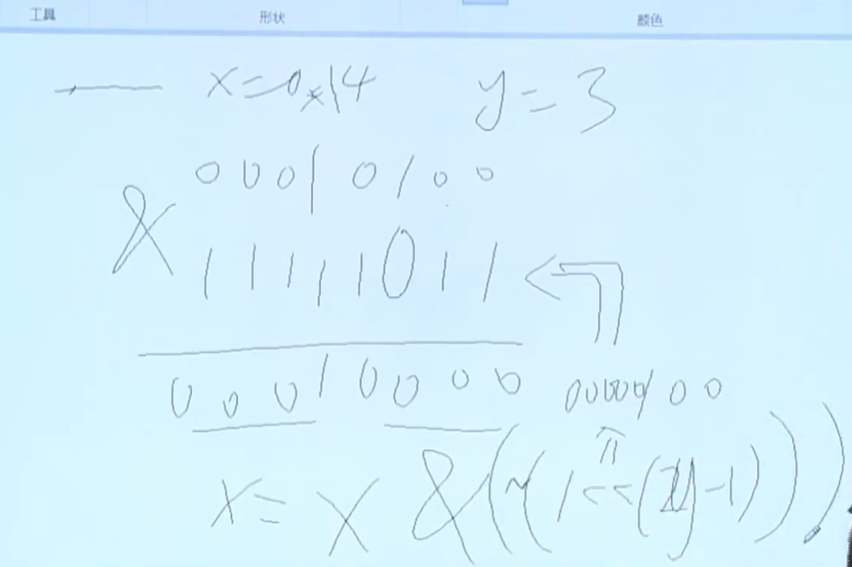 工具 形状 颜色
x=0x14 y=3
00010100
& 11111011
00010000 00000100
x= x &(~(1<<(y-1)))